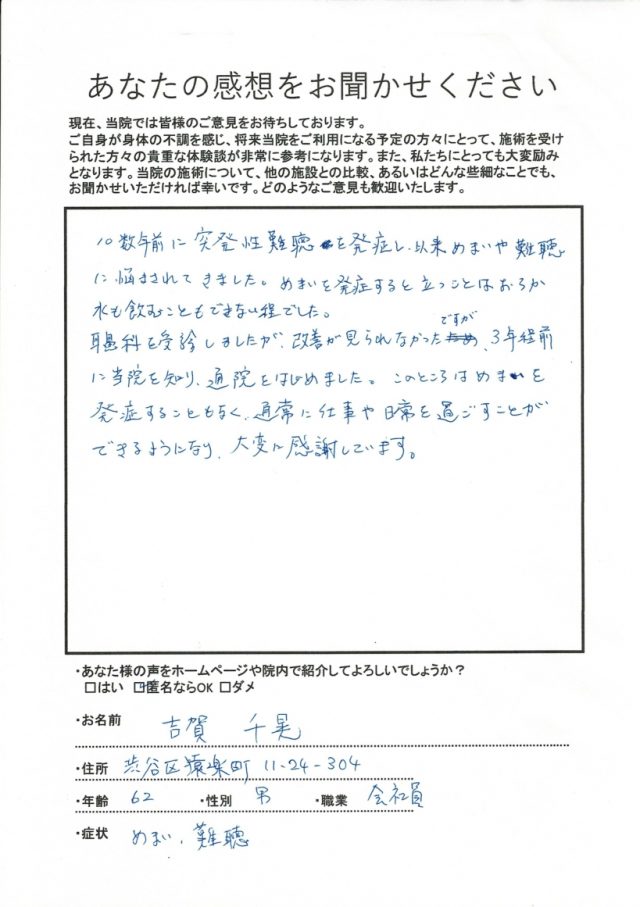 あなたの感想をお聞かせください
現在、当院では皆様のご意見をお待ちしております。
ご自身が身体の不調を感じ、将来当院をご利用になる予定の方々にとって、施術を受け
られた方々の貴重な体験談が非常に参考になります。また、私たちにとっても大変励み
となります。当院の施術について、他の施設との比較、あるいはどんな些細なことでも、
お聞かせいただければ幸いです。どのようなご意見も歓迎いたします。
10数年前に突発性難聴を発症し、以来めまいや難聴
に悩まされてきました。めまいを発症すると立つことはおろか
水も飲むこともできない程でした。
耳鼻科を受診しましたが、改善が見られなかったですが、3年程前
に当院を知り、通院をはじめました。このところはめまいを
発症することもなく、通常に仕事や日常を過ごすことが
できるようになり、大変に感謝しています。
・あなた様の声をホームページや院内で紹介してよろしいでしょうか？
□はい ☑匿名ならOK □ダメ
・お名前 吉賀 千晃
・住所 渋谷区猿楽町 11-24-304
・年齢 62 ・性別 男 ・職業 会社員
・症状 めまい、難聴